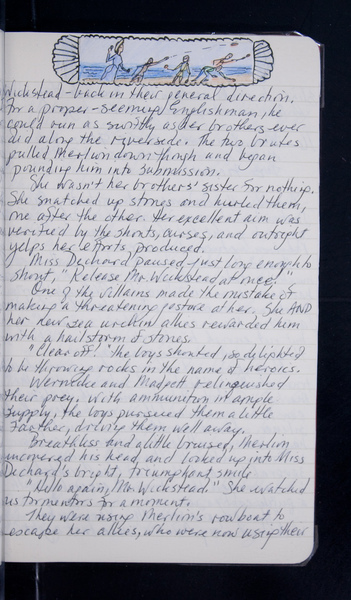 Wickstead - back in their general direction.
For a proper-seeming Englishman, he
could run as swiftly as her brothers ever
did along the riverside. The two brutes
pulled Merlwin down though and began
pounding him into submission.
She wasn't her brothers' sister for nothing.
She snatched up stones and hurled them,
one after the other. Her excellent aim was
verified by the shouts, curses, and outright
yelps her efforts produced.
Miss Dechard paused just long enough to
shout, "Release Mr. Wickstead at once!"
One of the villains made the mistake of
making a threatening gesture at her. She AND
her new sea urchin allies rewarded him
with a hailstorm of stones.
"Clear off!" the boys shouted, delighted
to be throwing rocks in the name of heroics.
Wernicke and Madpott relinquished
their prey. With ammunition in ample
supply, the boys pursued them a little
farther, driving them well away.
Breathless and a little bruised, Merlwin
uncovered his head, and looked up into Miss
Dechard's bright, triumphant smile.
"Hello again, Mr. Wickstead." She watched
his tormentors for a moment.
They were using Merlwin's rowboat to
escape her allies, who were now using their